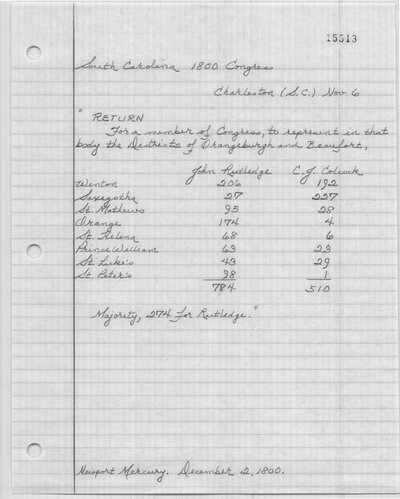 15513
South Carolina 1800 Congress
Charleston (S.C.) Nov. 6
"RETURN
For a member of Congress, to represent in that
body the Districts of Orangeburgh and Beaufort,
John Rutledge C. J. Colcock
Winton 206 192
Saxegotha 27 227
St. Mathews 95 28
Orange 174 4
St. Helena 68 6
Prince William 63 23
St. Luke's 43 29
St. Peter's 98 1
784 510
Majority, 274 for Rutledge."
Newport Mercury. December 2, 1800.